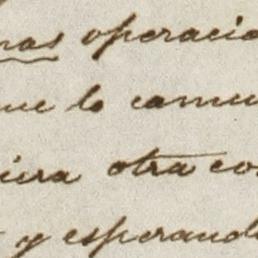 nas operacio
ue lo comu
iera otra co
y esperando